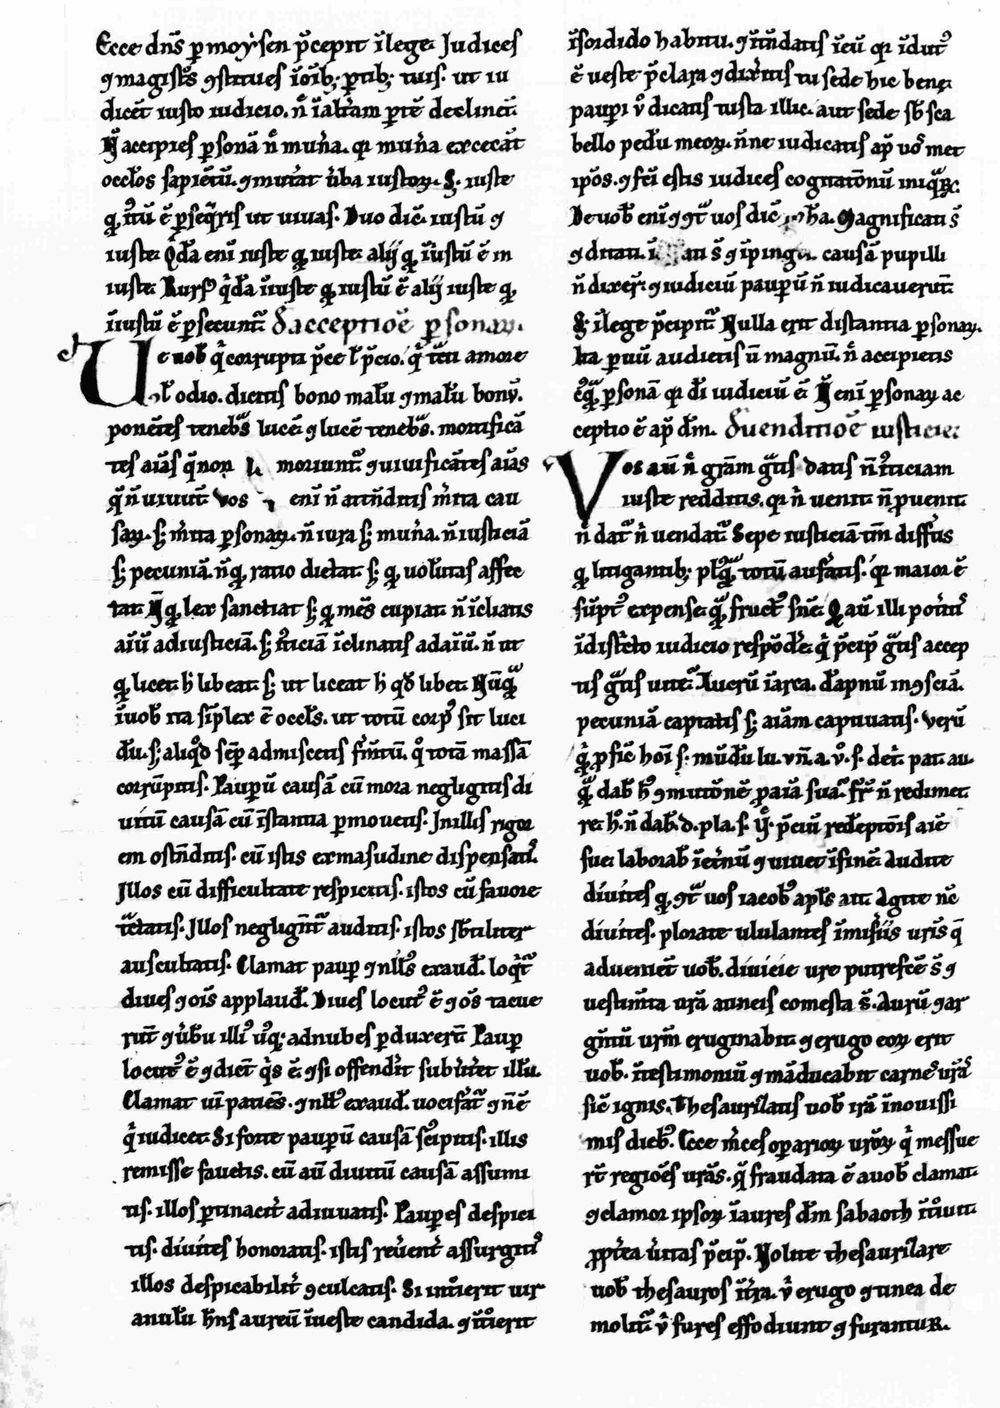 Ecce dn̄s ꝑ moẏsen p̄cepit ī lege. Judices
⁊ magist̄s ꝯstitues ī oīb; portib; tuis. ut iu
dicēt iusto iudicio. n̄ ī alt̄am ꝑtē declinēt.
N̄ accipies ꝑsonā n̄ mun̄a. qͥ mun̄a excecāt
oc̄ł̄os sapiētū. ⁊ mutāt ūba iustoꝝ. S; iuste
q̄ iustū ē ꝑseq̄ris ut uiuas. Duo dic̄. iustū ⁊
iuste. Q̄da enī iuste ꝙ iuste. alij ꝙ īiustū ē in
iuste. Rursꝰ q̄dā īiuste ꝙ iustū ē alij iuste ꝙ
īiustū ē ꝑsecunt̄. d̄ acceptiōe ꝑsonaꝝ.
Ve uob̄ q̄ corrupti p̄ce ł p̄cio. q̄ tti amore
ł odio. dicitis bono malū ⁊ malū bonū.
ponētes tenebs̄ lucē ⁊ lucē tenebs̄. mortificā
tes aīas q̄ non moriunt̄ ⁊ uiuificātes aīas
q̄ n̄ uiuūt. Vos enī n̄ attn̄ditis m̄ita cau
saꝝ. s; m̄ita ꝑsonaꝝ. n̄ iura s; mun̄a. n̄ iusticiā
s; pecuniā. n̄ ꝙ ratio dictat. s; ꝙ uolūtas affec
tat. N̄ ꝙ lex sanctiat s; ꝙ mēs cupiat. n̄ īclinatis
aīū ad iusticiā. s; iusticiā īclinatis ad aīū. n̄ ut
ꝙ licet h̄ libeat. s; ut liceat h̄ qd̄ libet. Nūꝙ
ī uob̄ ita simplex ē oc̄ł̄s. ut totū corpꝰ sit luci
dū. s; aliq̄d semp̄ admiscetis f̄mti. q̄ totā massā
corrūpitis. Pauꝑū causā cū mora negligitis di
uitū causā cū īstantia ꝑmouetis. In illis rigor
em ostn̄ditis. cū istis ex māsudine dispensatis.
Illos cū difficultate respicitis. istos cū fauore
tctatis. Illos neglignt̄ auditis. istos sb̄tiliter
auscultatis. Clamat paup̄ ⁊ nłłs exaud̄. loq̄t̄
diues ⁊ oīs applaud̄. Diues locutꝰ ē ⁊ oēs tacue
rūt ⁊ ūbū illiꝰ usq; ad nubes ꝑduxerūt. Paup̄
locutꝰ ē ⁊ dicūt q̄s ē. ⁊ si offendīt subūtēt illū.
Clamat uim patiēs. ⁊ nłłs exaud̄. uociferat̄ ⁊ n̄ ē
q̄ iudicet. Si forte pauꝑū causā suscipitis. illis
remisse fauetis. cū aū diuitū causā assumi
tis. illos ꝑtinacit̄ adiuuatis. Pauꝑes despici
tis. diuites honoratis. istis reuerēt̄ assurgitis
illos despicabilit̄ ꝯculcatis. Si int̄ierit uir
anulū hn̄s aureū ī ueste candida. ⁊ int̄ierit
ī sordido habitu. ⁊ intn̄datis ī eū qͥ īdutꝰ
ē ueste p̄clara ⁊ dix̄itis tu sede hic bene.
pauꝑi ū dicatis tu sta illic. aut sede sb̄ sca
bello pedū meoꝝ. n̄ne iudicatis ap̄ uos met
ipōs. ⁊ fc̄i estis iudices cogitationū iniq̄ꝝ.
De uob̄ enī ⁊ ꝯt̄ uos dic̄ ꝓph̄a. Magnificati s̄
⁊ ditati. s̄ ⁊ īpinguati. causā pupilli
n̄ dixer̄. ⁊ iudiciū pauꝑū n̄ iudicauerūt.
S; ī lege p̄cipit̄. Nulla erit distantia ꝑsonaꝝ.
ita paruū audietis ū magnū. n̄ accipietis
cuiusꝙ ꝑsonā qͥ dī iudiciū ē. N̄ enī ꝑsonaꝝ ac
ceptio ē ap̄ dm̄. d̄ uenditiōe iusticie.
Vos aū n̄ gr̄am gt̄is datis n̄ iusticiam
iuste redditis. qͥ n̄ uenit n̄ ꝓuenit.
n̄ dat̄ n̄ uendat̄. Sepe iusticiā tm̄ differtis
ꝙ litigantib; plꝰꝙ totū aufertis. qͥ maior ē
sūptꝰ expense ꝙ fructꝰ snīe. Q̄ aū illi potitis
ī distc̄to iudicio respōdere. q̄ p̄cip̄ gt̄is accep
tis gt̄is date. Lucrū ī arca. dāpnū ī ꝯsciā.
pecuniā captatis s; aīam captiuatis. Verū
quid p̄fic̄ hoī s. mūdū lu. un̄. a. ū. s. det. pat. au.
ꝙ dab̄ hō ꝯmutōnē ꝓ aīa sua. Fr̄ n̄ redimet.
re. h̄. n̄ dab̄. d. pla. s. ⁊ p̄ciū redēptōis aīe
sue. laborab̄ ī et̄nū ⁊ uiuet ī finē. Audite
diuites ꝙ ꝯt̄ uos iacob̄ apłs ait. Agite nc̄
diuites. plorate ululantes ī misiis uris q̄
aduenient uob̄. diuicie ure putrefc̄e s̄ ⁊
uestim̄ta urā a tineis comesta s̄. Aurū ⁊ ar
gn̄tū urm̄ eruginabit. ⁊ erugo eoꝝ erit
uob̄. ī testimoniū ⁊ māducabit carnes uras̄
sic̄ ignis. Thesaurizatis uob̄ irā ī nouissi
mis diebꝰ. Ecce m̄ces operarioꝝ uroꝝ q̄ messue
rt̄ regiōes uras̄. q̄ fraudata ē a uob̄ clamat.
⁊ clamor ipsoꝝ ī aures dm̄ sabaoth īt̄oiuit.
ꝓpt̄ea ūitas p̄cip̄. Nolite thesaurizare
uob̄ thesauros ī t̄ra. ū erugo ⁊ tinea de
molit̄. ū fures effodiunt ⁊ furantur.